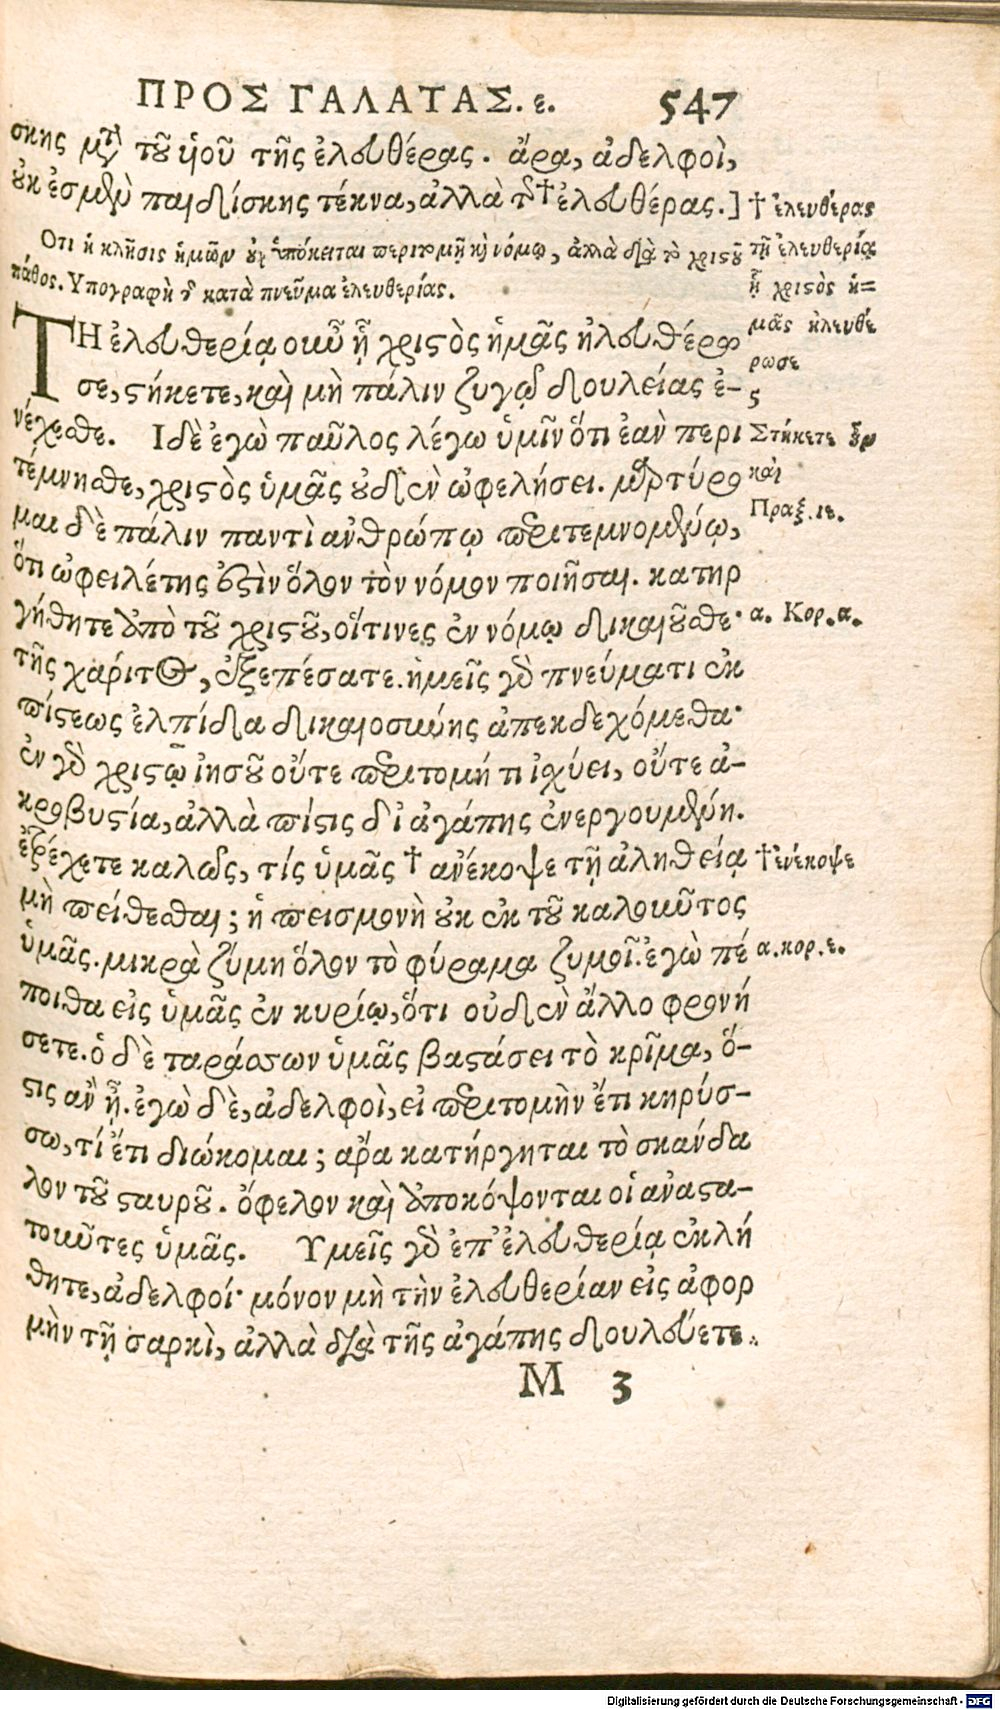 ΠΡΟΣ ΓΑΛΑΤΑΣ. ε. 547
σκης μετὰ τοῦ υἱοῦ τῆς ἐλευθέρας. ἄρα, ἀδελφοὶ,
οὐκ ἐσμὲν παιδίσκης τέκνα, ἀλλὰ τῆς † ἐλευθέρας.] † ἐλευθέρας
Οτι ἡ κλῆσις ἡμῶν οὐχ ὑπόκειται περιτομῇ καὶ νόμῳ, ἀλλὰ διὰ τὸ χριστοῦ τῇ ἐλευθερίᾳ
πάθος. Υπογραφὴ τῆς κατὰ πνεῦμα ἐλευθερίας. ᾗ χριστὸς ἡ=
ΤΗ ἐλευθερίᾳ οὖν ᾗ χριστὸς ἡμᾶς ἠλευθέρω μᾶς ἠλευθέ
ρωσε
σε, στήκετε, καὶ μὴ πάλιν ζυγῷ δουλείας ἐ- 5
νέχεσθε. Ιδὲ ἐγὼ παῦλος λέγω ὑμῖν ὅτι ἐὰν περι Στήκετε οὖν
τέμνησθε, χριστὸς ὑμᾶς οὐδὲν ὠφελήσει. μαρτύρο καὶ
μαι δὲ πάλιν παντὶ ἀνθρώπῳ περιτεμνομένῳ, Πραξ. ιε.
ὅτι ὠφειλέτης ἐστὶν ὅλον τὸν νόμον ποιῆσαι. κατηρ
γήθητε ἀπὸ τοῦ χριστοῦ, οἵτινες ἐν νόμῳ δικαιοῦσθε· α. Κορ. α.
τῆς χάριτος, ἐξεπέσατε. ἡμεῖς γὰρ πνεύματι ἐκ
πίστεως ἐλπίδα δικαιοσύνης ἀπεκδεχόμεθα·
ἐν γὰρ χριστῷ ἰησοῦ οὔτε περιτομή τι ἰσχύει, οὔτε ἀ-
κροβυστία, ἀλλὰ πίστις δἰ ἀγάπης ἐνεργουμένη.
ἐτρέχετε καλῶς, τίς ὑμᾶς † ἀνέκοψε τῇ ἀληθείᾳ † ἐνέκοψε
μὴ πείθεσθαι; ἡ πεισμονὴ οὐκ ἐκ τοῦ καλοῦντος
ὑμᾶς. μικρὰ ζύμη ὅλον τὸ φύραμα ζυμοῖ. ἐγὼ πέ α. κορ. ε.
ποιθα εἰς ὑμᾶς ἐν κυρίῳ, ὅτι οὐδὲν ἄλλο φρονή
σετε. ὁ δὲ ταράσσων ὑμᾶς βαστάσει τὸ κρῖμα, ὅ-
στις ἂν ᾖ. ἐγὼ δὲ, ἀδελφοὶ, εἰ περιτομὴν ἔτι κηρύσ-
σω, τί ἔτι διώκομαι; ἄρα κατήργηται τὸ σκάνδα
λον τοῦ σταυροῦ. ὄφελον καὶ ἀποκόψονται οἱ ἀναστα-
τοῦντες ὑμᾶς. Υμεῖς γὰρ ἐπ' ἐλευθερίᾳ ἐκλή
θητε, ἀδελφοί· μόνον μὴ τὴν ἐλευθερίαν εἰς ἀφορ
μὴν τῇ σαρκὶ, ἀλλὰ διὰ τῆς ἀγάπης δουλεύετε
M 3
Digitalisierung gefördert durch die Deutsche Forschungsgemeinschaft - DFG